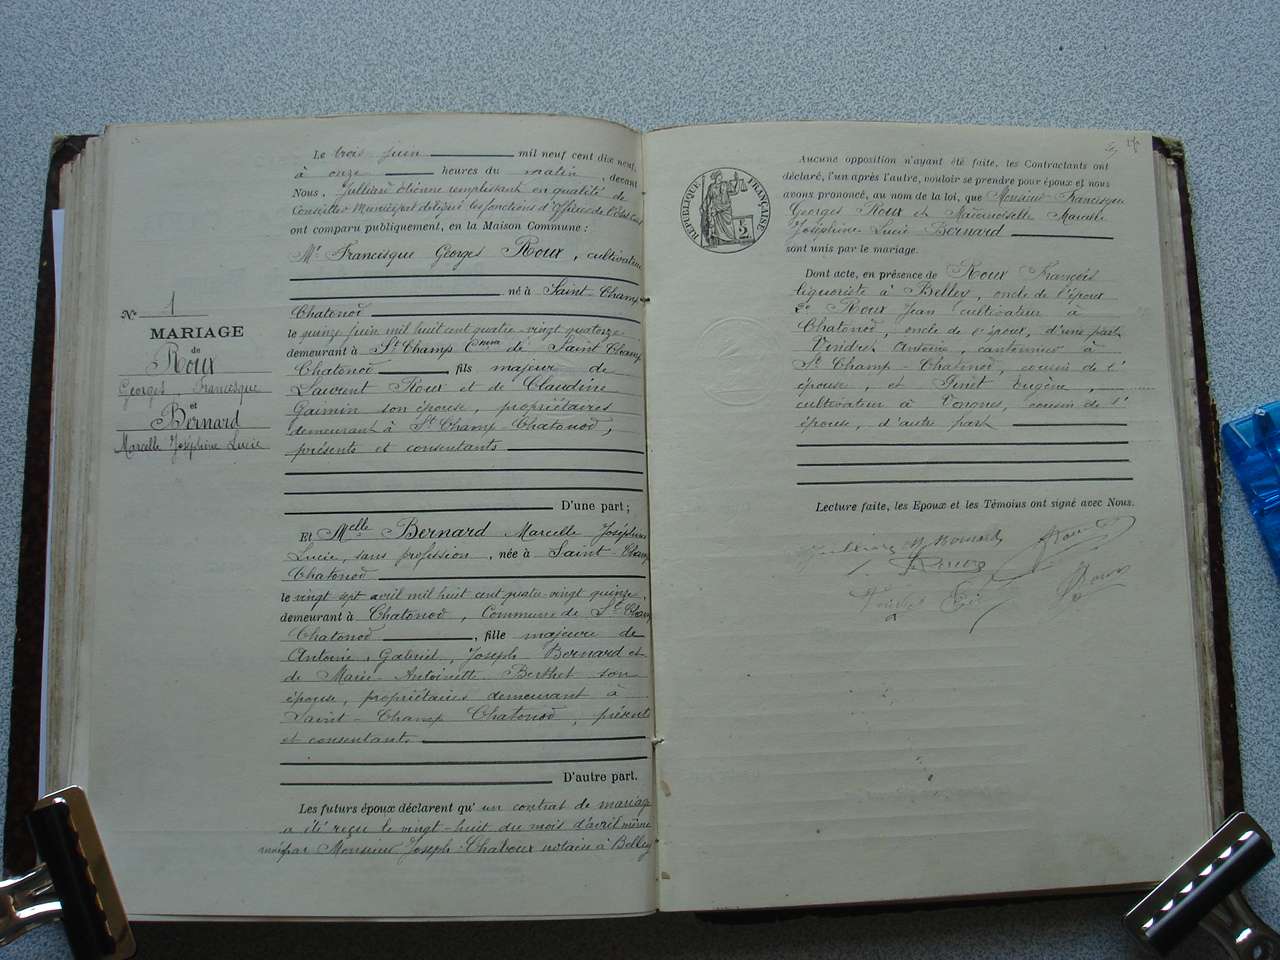 Nº 1
MARIAGE
de
Roux
Georges, Francisque
et
Bernard
Marcelle Joséphine Lucie
Le trois juin mil neuf cent dix neuf,
à onze heures du matin, devant
Nous, Julliard Etienne remplissant en qualité de
Conseiller Municipal délégué les fonctions d'Officier de l'Etat Civil
ont comparu publiquement, en la Maison Commune :
Mr Francisque Georges Roux, cultivateur
né à Saint Champ
Chatonod
le quinze juin mil huit cent quatre-vingt quatorze
demeurant à St Champ Cmune de Saint Champ
Chatonod fils majeur de
Laurent Roux et de Claudine
Guimin son épouse, propriétaires
demeurant à St Champ-Chatonod,
présents et consentants
D'une part ;
Et Melle Bernard Marcelle Joséphine
Lucie, sans profession, née à Saint Champ
Chatonod
le vingt sept avril mil huit cent quatre-vingt quinze,
demeurant à Chatonod, Commune de St Champ
Chatonod, fille majeure de
Antoine, Gabriel, Joseph Bernard et
de Marie-Antoinette Berthet son
épouse, propriétaires demeurant à
Saint-Champ Chatonod, présents
et consentants
D'autre part.
Les futurs époux déclarent qu'un contrat de mariage
a été reçu le vingt-huit du mois d'avril même
par Monsieur Joseph Chaboux notaire à Belley
RÉPUBLIQUE FRANÇAISE
Aucune opposition n'ayant été faite, les Contractants ont
déclaré, l'un après l'autre, vouloir se prendre pour époux et nous
avons prononcé, au nom de la loi, que Monsieur Francisque
Georges Roux et Mademoiselle Marcelle
Joséphine Lucie Bernard
sont unis par le mariage.
Dont acte, en présence de Roux François
liquoriste à Belley, oncle de l'époux
2º Roux Jean cultivateur à
Chatonod, oncle de l'époux, d'une part
Vendret Antoine, cantonnier à
St Champ-Chatonod, cousin de l'
épouse, et Genet Eugène,
cultivateur à Vongnes, cousin de l'
épouse, d'autre part
Lecture faite, les Epoux et les Témoins ont signé avec Nous.
M Bernard
Roux
Roux